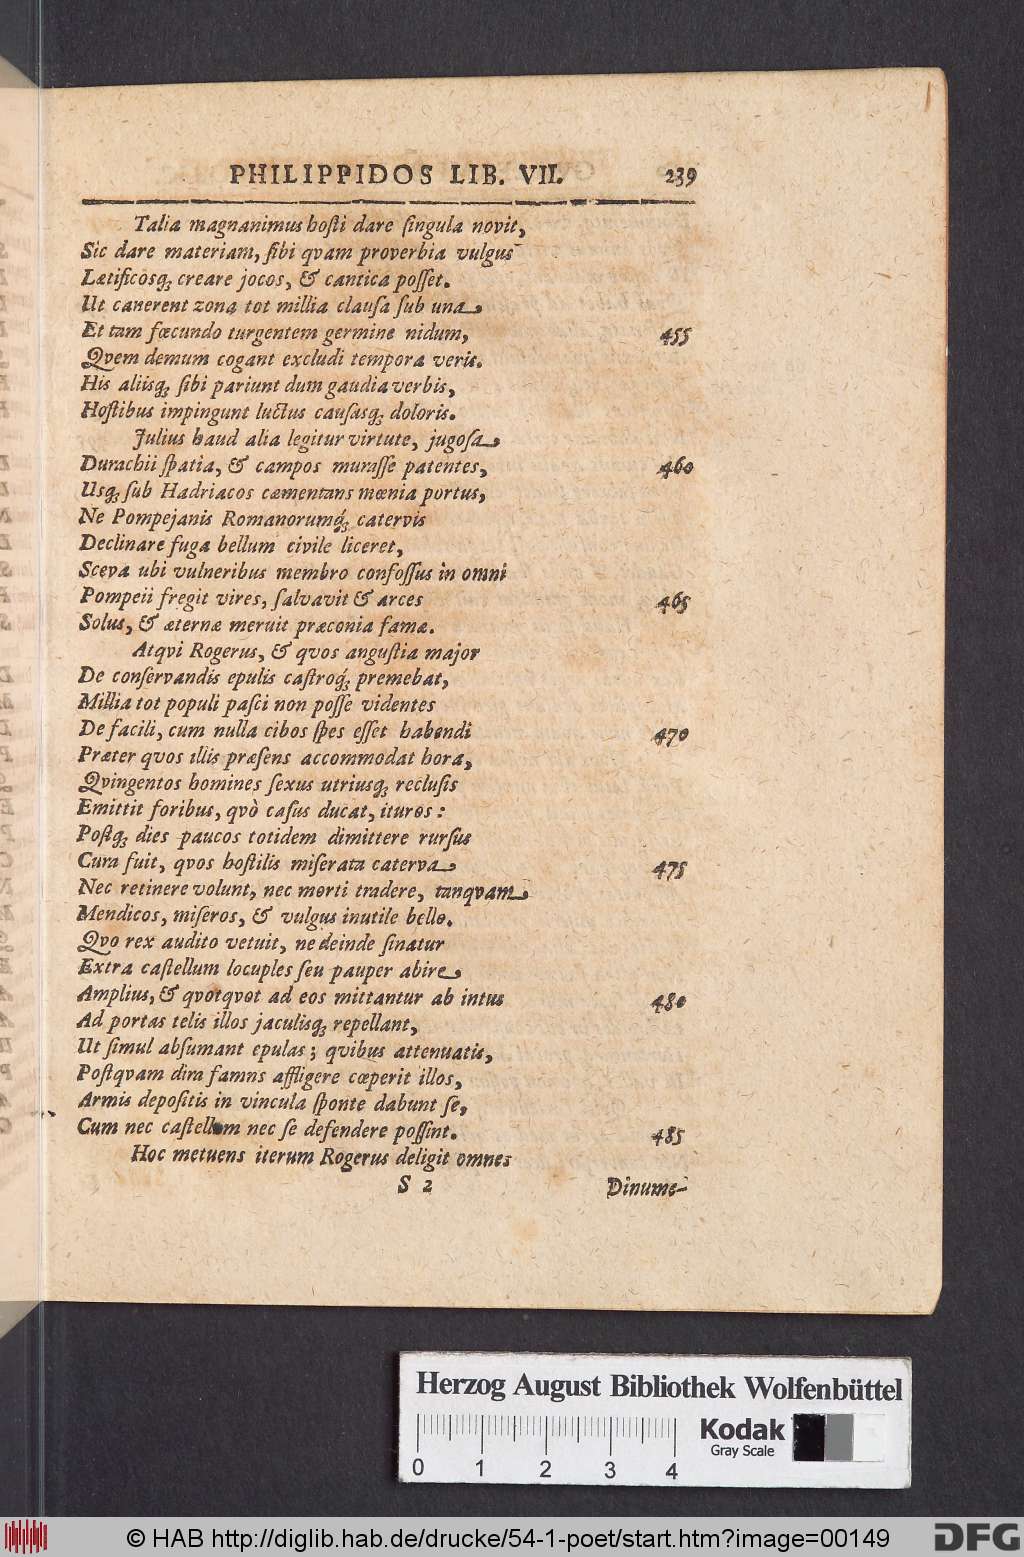 PHILIPPIDOS LIB. VII. 239
Talia magnanimus hoſti dare ſingula novit,
Sic dare materiam, ſibi qvam proverbia vulgus
Lætificosq; creare jocos, & cantica poſſet.
Ut canerent zona tot millia clauſa ſub una
Et tam fœcundo turgentem germine nidum, 455
Qvem demum cogant excludi tempora veris.
His aliisq; ſibi pariunt dum gaudia verbis,
Hoſtibus impingunt luctus cauſasq; doloris.
Julius haud alia legitur virtute, jugoſa
Durachii ſpatia, & campos muraſſe patentes, 460
Usq; ſub Hadriacos cæmentans mœnia portus,
Ne Pompejanis Romanorumq́; catervis
Declinare fuga bellum civile liceret,
Sceva ubi vulneribus membro confoſſus in omni
Pompeii fregit vires, ſalvavit & arces 465
Solus, & æternæ meruit præconia famæ.
Atqvi Rogerus, & qvos anguſtia major
De conſervandis epulis caſtroq́; premebat,
Millia tot populi paſci non poſſe videntes
De facili, cum nulla cibos ſpes eſſet habendi 470
Præter qvos illis præſens accommodat hora,
Qvingentos homines ſexus utriusq; recluſis
Emittit foribus, qvò caſus ducat, ituros:
Poſtq; dies paucos totidem dimittere rurſus
Cura fuit, qvos hoſtilis miſerata caterva 475
Nec retinere volunt, nec morti tradere, tanqvam
Mendicos, miſeros, & vulgus inutile bello.
Qvo rex audito vetuit, ne deinde ſinatur
Extra caſtellum locuples ſeu pauper abire
Amplius, & qvotqvot ad eos mittantur ab intus 480
Ad portas telis illos jaculisq; repellant,
Ut ſimul abſumant epulas; qvibus attenuatis,
Poſtqvam dira famns affligere cœperit illos,
Armis depoſitis in vincula ſponte dabunt ſe,
Cum nec caſtellum nec ſe defendere poſſint. 485
Hoc metuens iterum Rogerus deligit omnes
S 2 Dinume-
Herzog August Bibliothek Wolfenbüttel
Kodak
Gray Scale
0 1 2 3 4
© HAB http://diglib.hab.de/drucke/54-1-poet/start.htm?image=00149
DFG